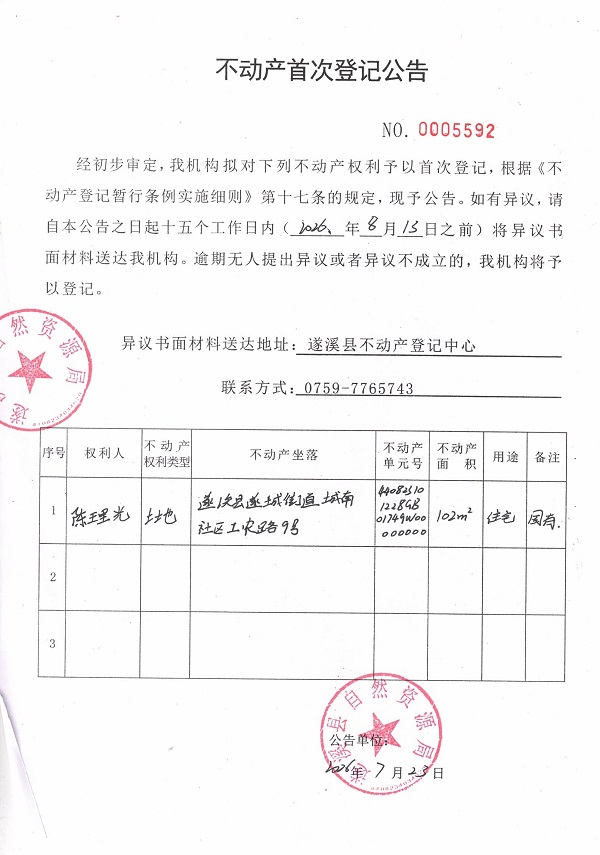 不动产首次登记公告
NO. 0005592
经初步审定，我机构拟对下列不动产权利予以首次登记，根据《不
动产登记暂行条例实施细则》第十七条的规定，现予公告。如有异议，请
自本公告之日起十五个工作日内（2026、年8月13日之前）将异议书
面材料送达我机构。逾期无人提出异议或者异议不成立的，我机构将予
以登记。
异议书面材料送达地址：遂溪县不动产登记中心
联系方式：0759-7765743
序号 权利人 不动产权利类型 不动产坐落 不动产单元号 不动产面积 用途 备注
1 陈理光 土地 遂溪县遂城街道城南社区工农路9号 440823101228GB01749W00000000 102m² 住宅 国有.
2
3
遂溪县自然资源局
公告单位：
2026年7月23日